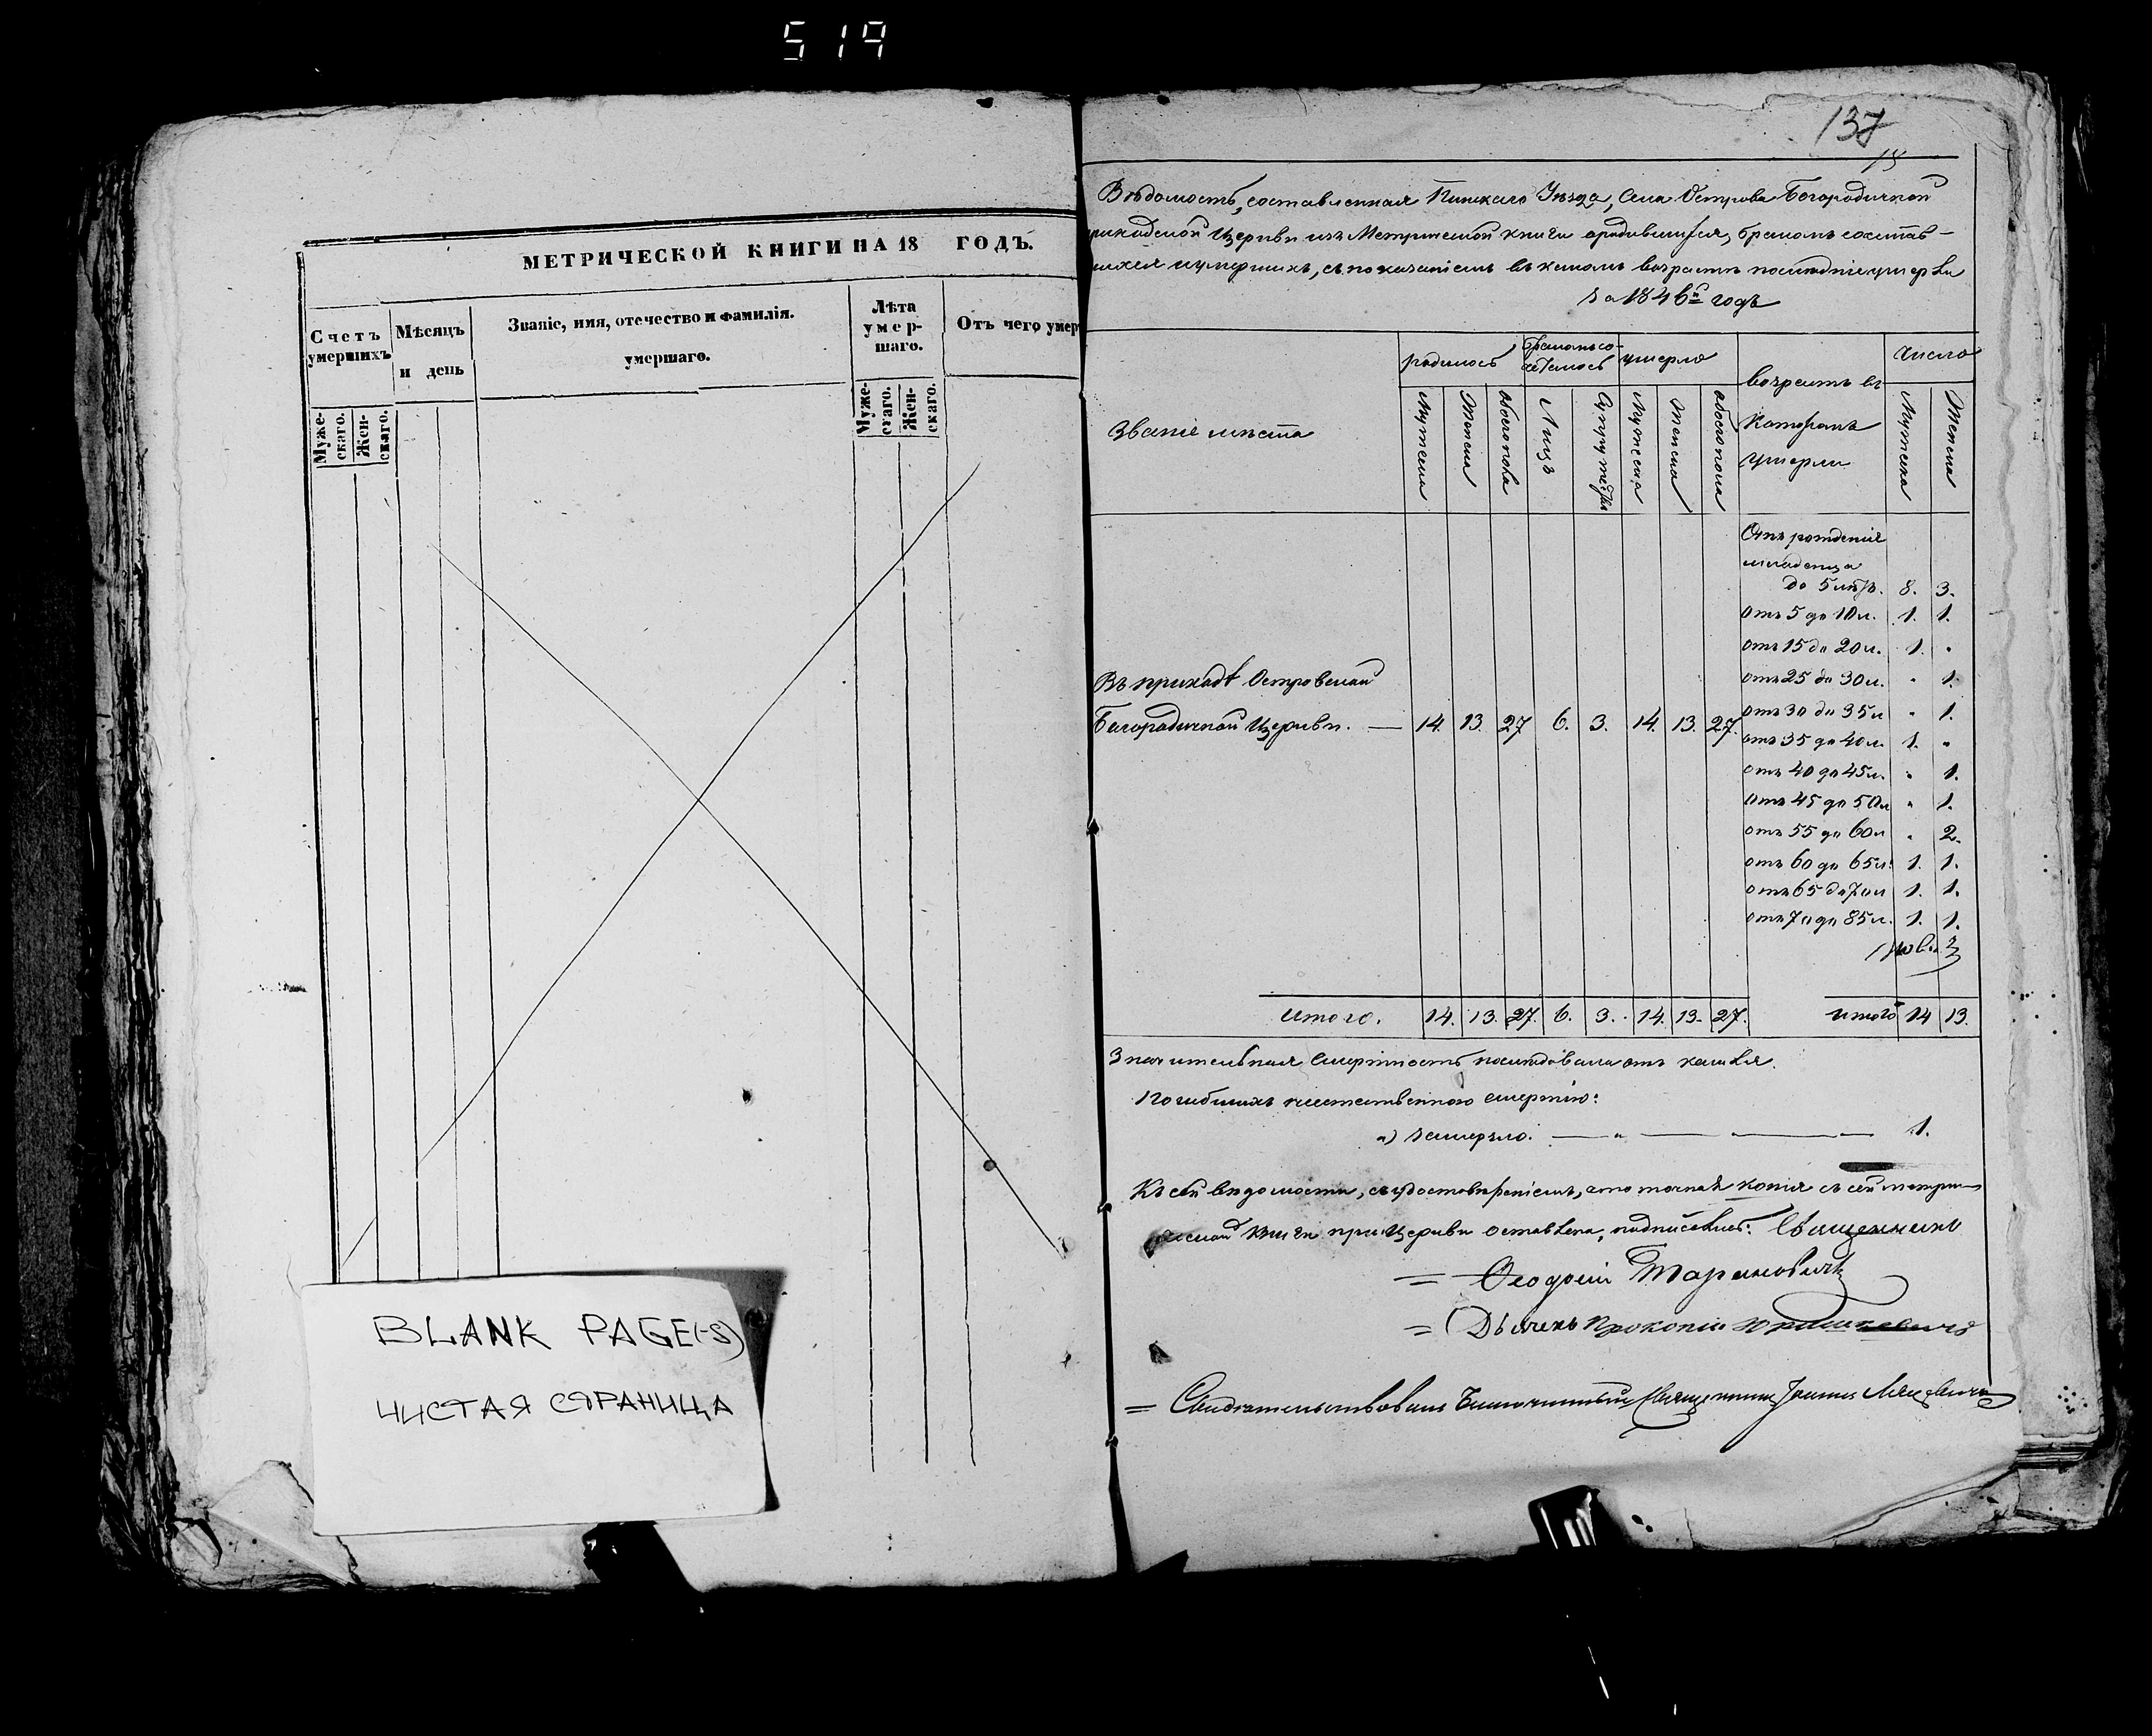 519
МЕТРИЧЕСКОЙ КНИГИ НА 18 ГОДЪ.
Счетъ умершихъ
Мѣсяцъ и день
Званіе, имя, отечество и фамилія.
умершаго.
Лѣта умер-шаго.
Отъ чего умер
Муже-скаго.
Жен-скаго.
Муже-скаго.
Жен-скаго.
BLANK PAGE(-S)
ЧИСТАЯ СТРАНИЦА
137
Вѣдомость, составленная Пинскаго Уѣзда, Села Острова Богородичной
приходской Церкви изъ Метрической книги о родившихся, бракомъ сочетав-
шихся и умершихъ, съ показаніемъ въ какомъ возрастѣ послѣдніе умерли
за 1846й годъ
Званіе мѣста
родилось
бракомъ со-четалось
умерло
возрастъ въ которомъ умерли
число
Мужеска
Женска
обоего пола
Лицъ
Супружествъ
Мужеска
Женска
обоего пола
Мужеска
Женска
Отъ рожденія
младенца
до 5 лѣтъ. 8. 3.
отъ 5 до 10 л. 1. 1.
отъ 15 до 20 л. 1. "
отъ 25 до 30 л. " 1.
отъ 30 до 35 л " 1.
отъ 35 до 40 л. 1. "
отъ 40 до 45 л. " 1.
отъ 45 до 50 л " 1.
отъ 55 до 60 л " 2.
отъ 60 до 65 л. 1. 1.
отъ 65 до 70 л 1. 1.
отъ 70 до 85 л. 1. 1.
Въ приходѣ Островской
Богородичной Церкви. — 14. 13. 27 6. 3. 14. 13. 27.
Итого. 14. 13. 27. 6. 3. 14. 13. 27.
итого 14 13.
Значительная смертность послѣдовала отъ кашля.
Погибшихъ неестественною смертію:
а) замерзло. — " — — 1.
Къ сей вѣдомости, съ удостовѣреніемъ, что точная копія съ сей метри-
ческой книги при Церкви оставлена, подписались: Священникъ
= Ѳеодосій Тарановичъ
= Дьячекъ Прокопій Юрашкевичъ
= Свидѣтельствовалъ Благочинный Священникъ Іоаннъ